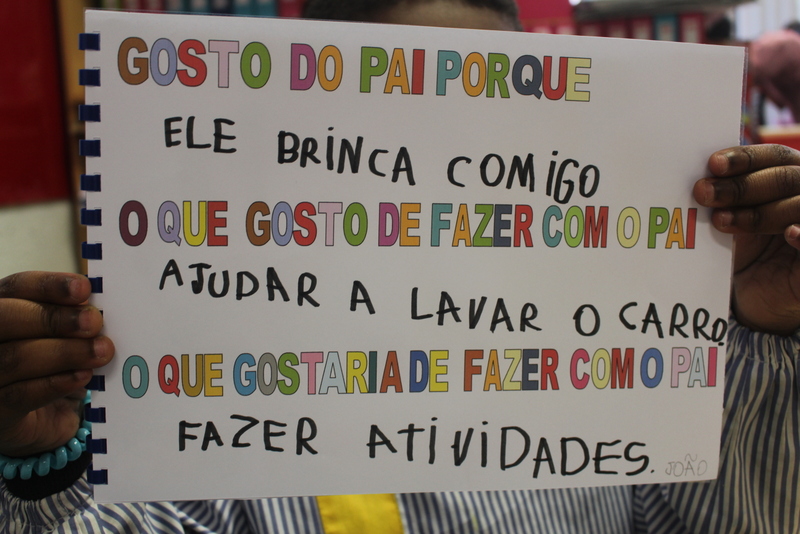 GOSTO DO PAI PORQUE
ELE BRINCA COMIGO
O QUE GOSTO DE FAZER COM O PAI
AJUDAR A LAVAR O CARRO.
O QUE GOSTARIA DE FAZER COM O PAI
FAZER ATIVIDADES.
JOÃO